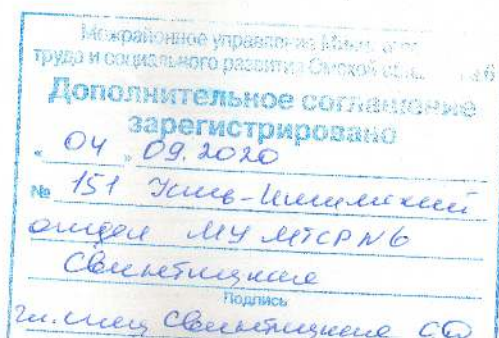 Межрайонное управление Мин
труда и социального развития Омской 6
Дополнительное соглашение
зарегистрировано
« 04 » 09.2020
№ 151 Усть-Ишимский
отдел МУ МТСР №6
Подпись
гл. спец